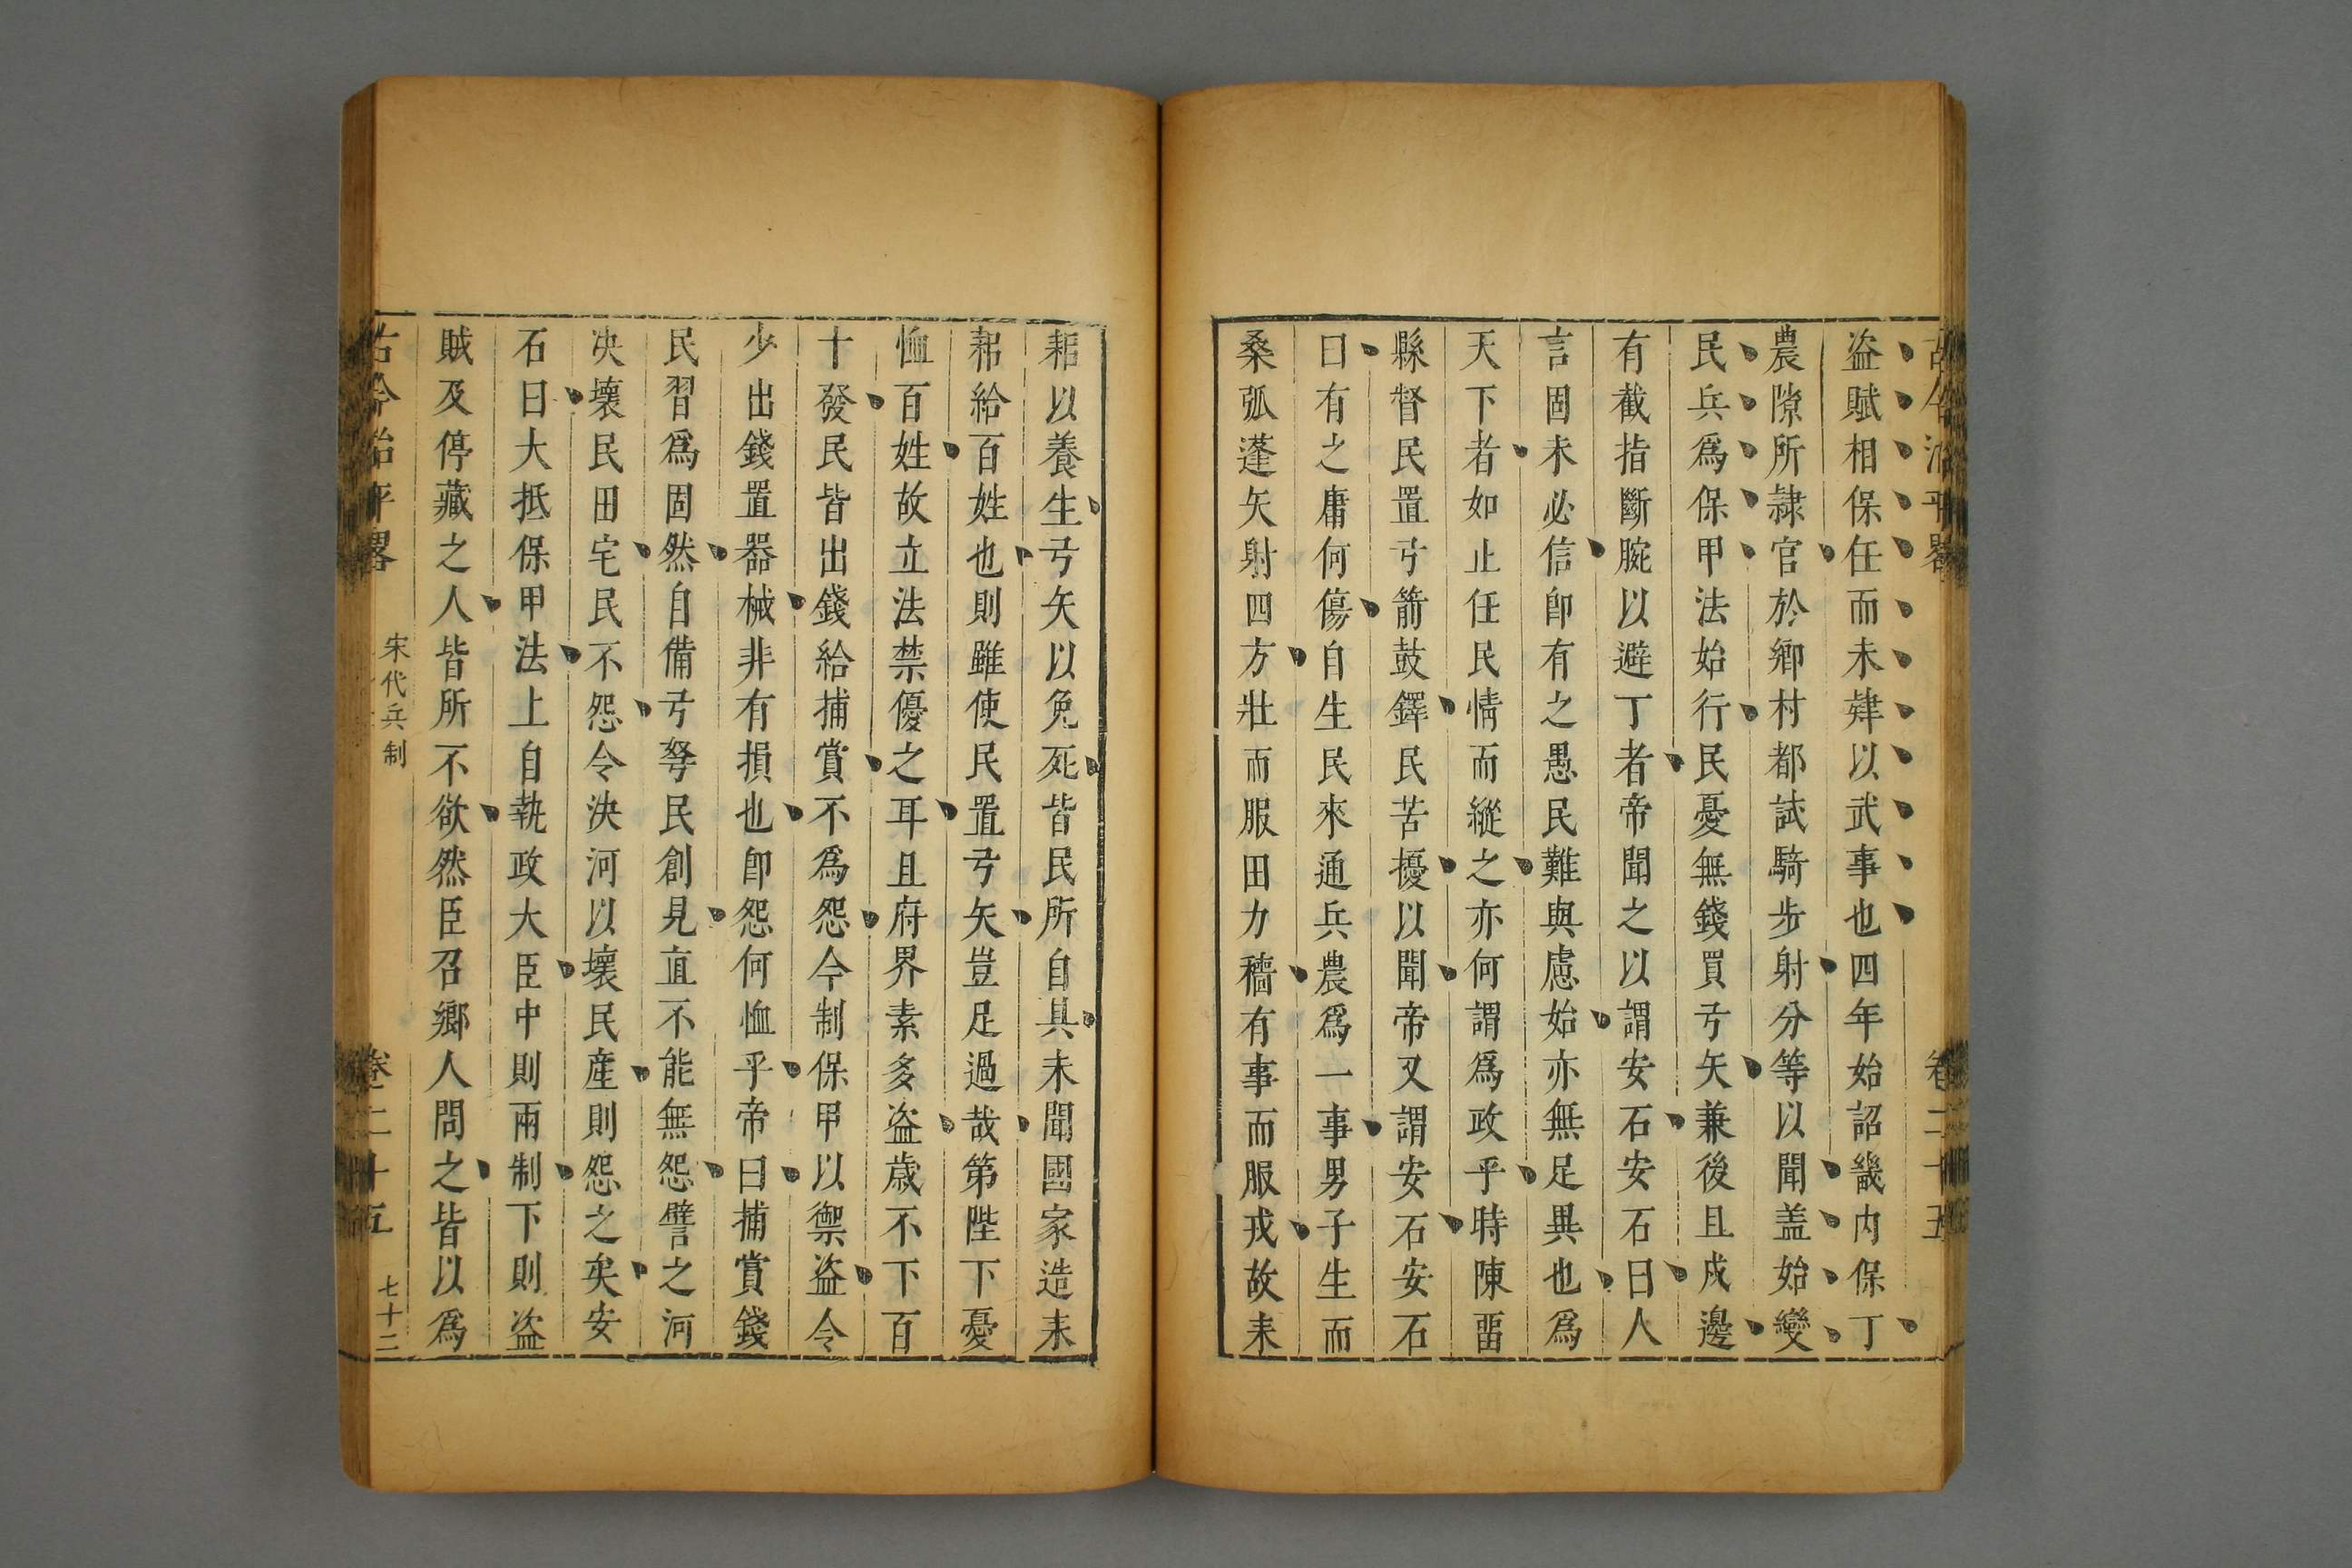 古今治平畧 卷二十五
盗賊相保任而未肄以武事也四年始詔畿内保丁
農隙所隷官於鄉村都試騎步射分等以聞盖始變
民兵爲保甲法始行民憂無錢買弓矢兼後且戍邊
有截指斷腕以避丁者帝聞之以謂安石安石曰人
言固未必信卽有之愚民難與慮始亦無足異也爲
天下者如止任民情而縱之亦何謂爲政乎時陳畱
縣督民置弓箭鼓鐸民苦擾以聞帝又謂安石安石
曰有之庸何傷自生民來通兵農爲一事男子生而
桑弧蓬矢射四方壯而服田力穡有事而服戎故耒
耜以養生弓矢以免死皆民所自具未聞國家造耒
耜給百姓也則雖使民置弓矢豈足過哉第陛下憂
恤百姓故立法禁優之耳且府界素多盗歲不下百
十發民皆出錢給捕賞不爲怨今制保甲以禦盗令
少出錢置器械非有損也卽怨何恤乎帝曰捕賞錢
民習爲固然自備弓弩民創見直不能無怨譬之河
决壞民田宅民不怨令決河以壞民產則怨之矣安
石曰大抵保甲法上自執政大臣中則兩制下則盗
賊及停藏之人皆所不欲然臣召鄉人問之皆以爲
古今治平畧 宋代兵制 卷二十五 七十二